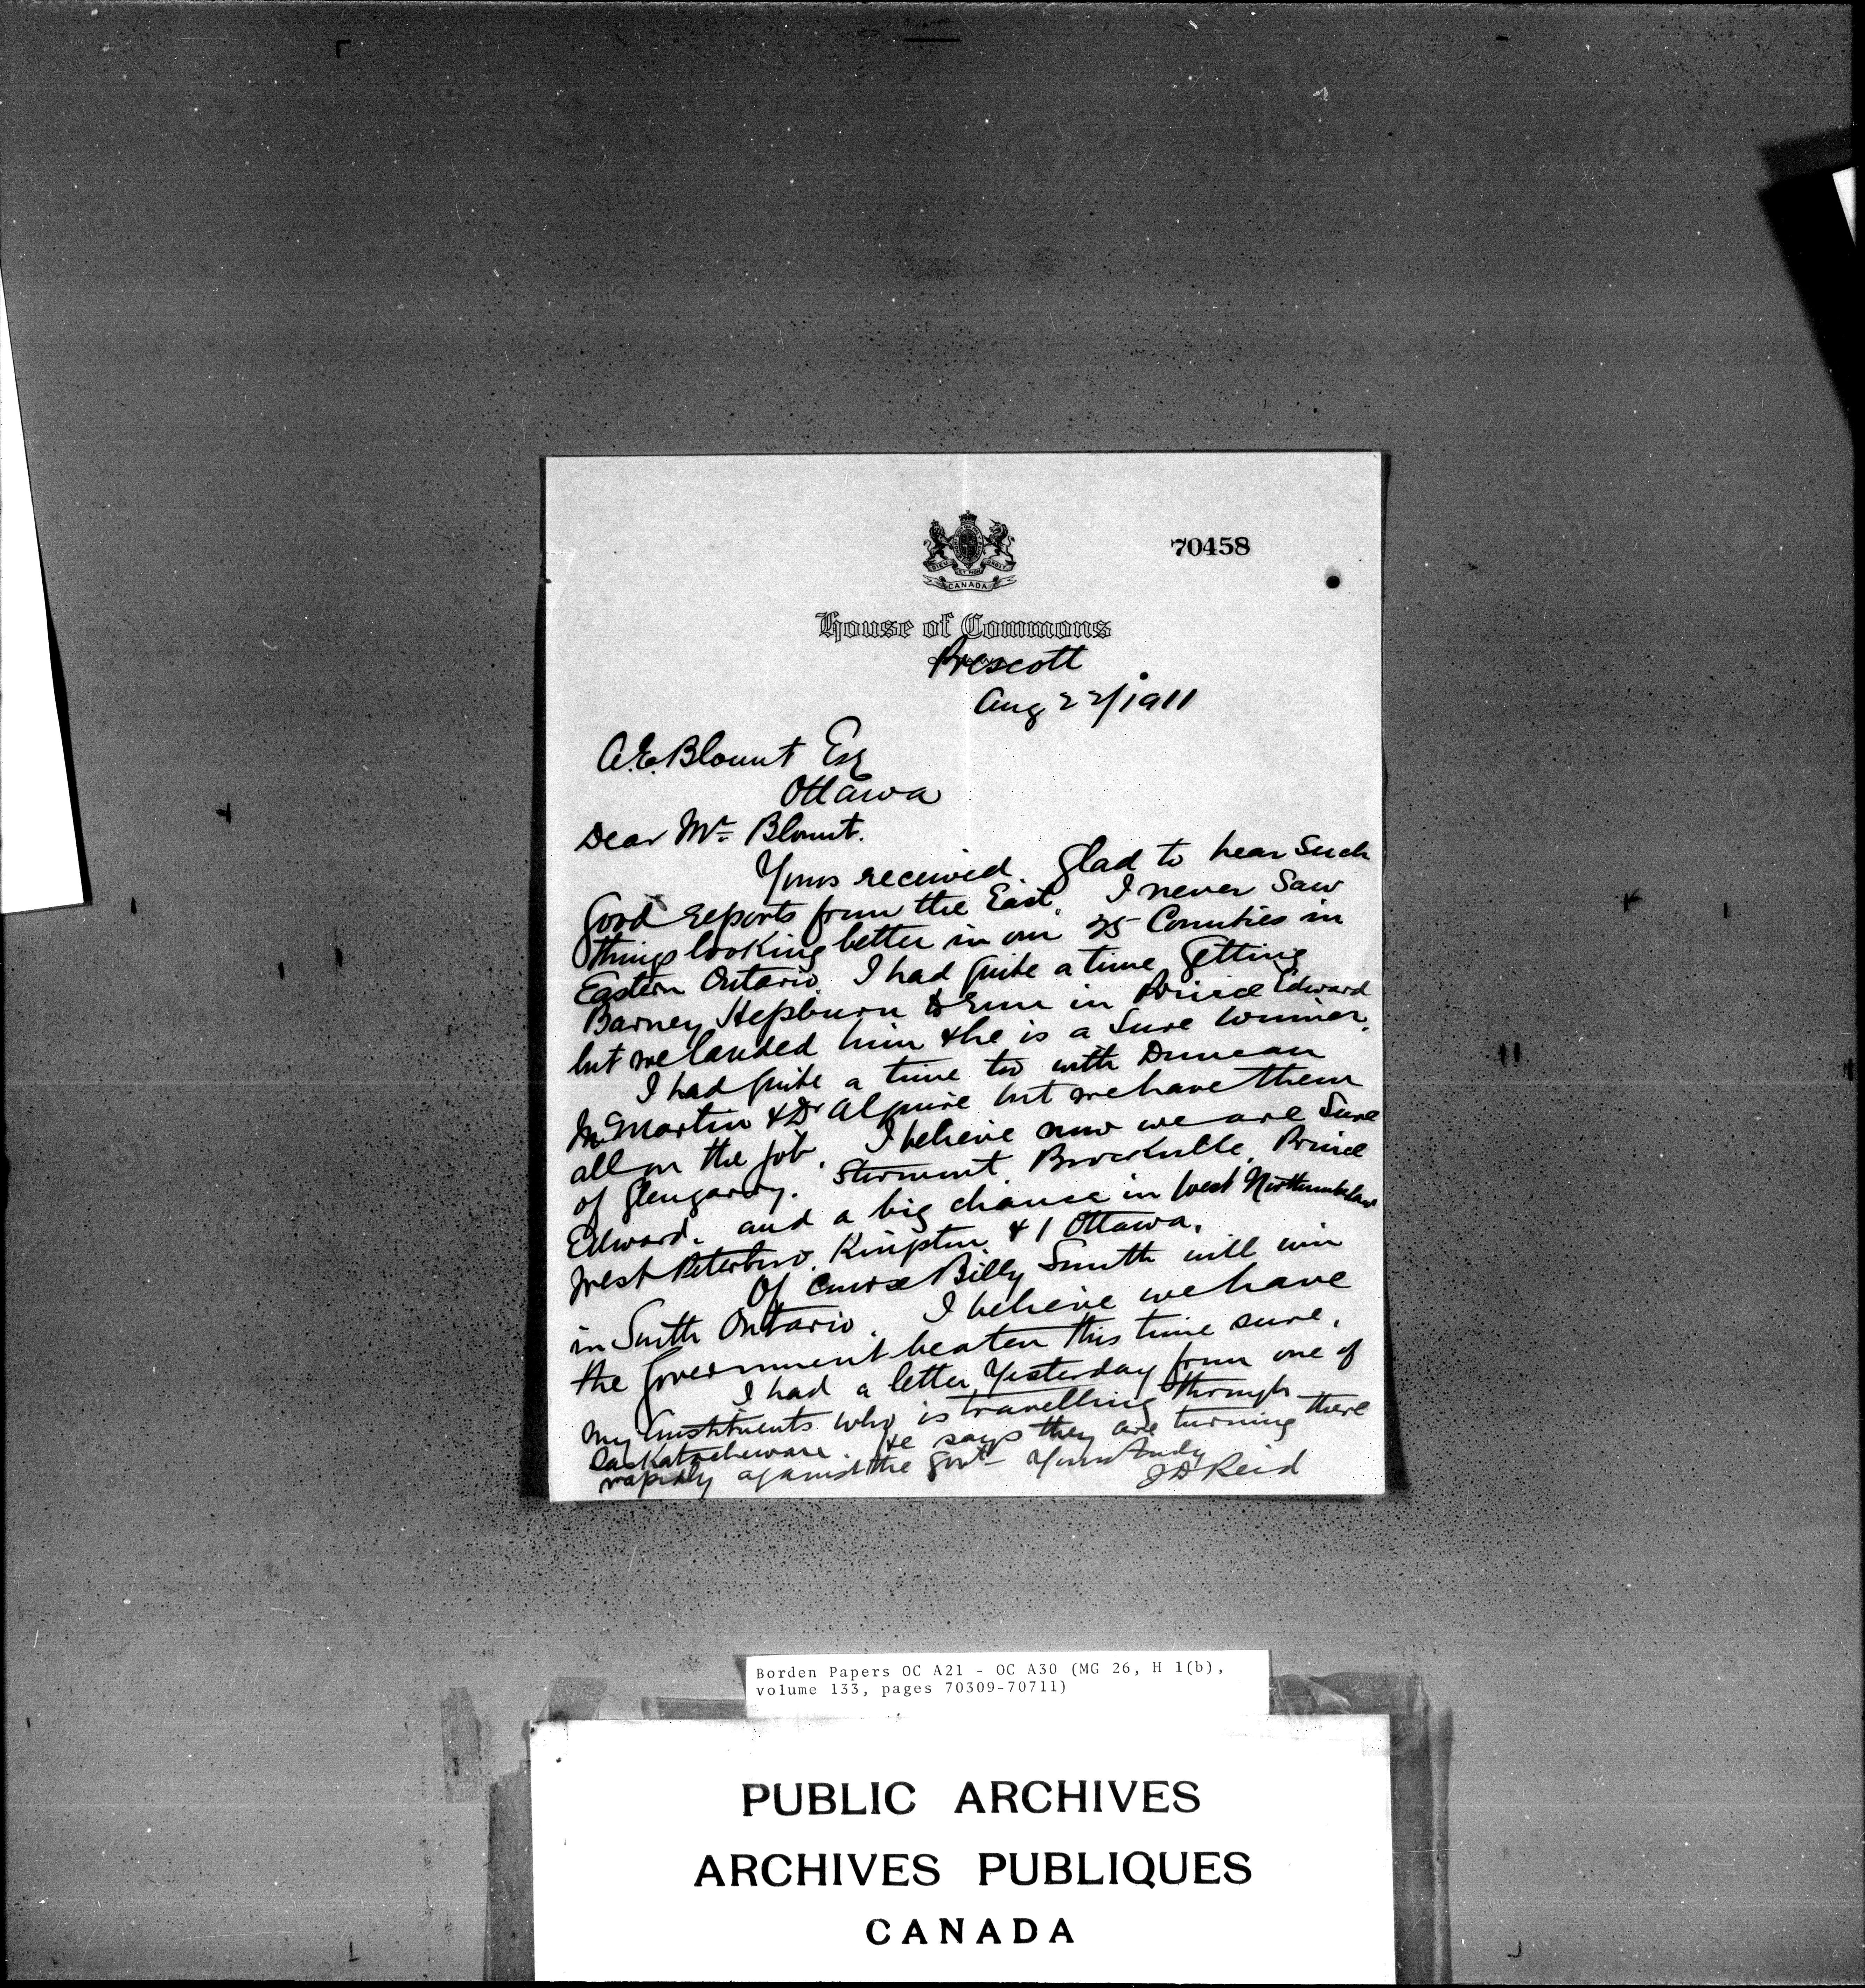 70458
DIEU ET MON DROIT
CANADA
House of Commons
Prescott
Aug 22/1911
A.E. Blount Esq
Ottawa
Dear Mr Blount.
Yours received. Glad to hear Such
Good reports from the East. I never Saw
things looking better in our 25 Counties in
Eastern Ontario. I had quite a time Getting
Barney Hepburn to run in Prince Edward
but we landed him & he is a Sure winner.
I had quite a time too with Duncan
McMartin & Dr Alguire but we have them
all on the job. I believe now we are Sure
of Glengarry. Stormont. Brockville. Prince
Edward. and a big chance in West Northumberland
West Peterboro. Kingston & 1 Ottawa.
Of Course Billy Smith will win
in South Ontario. I believe we have
the Government beaten this time sure.
I had a letter Yesterday from one of
my Constituents who is travelling through
Saskatchewan. He says they are turning there
rapidly against the Govt Yours truly
J D Reid
Borden Papers OC A21 - OC A30 (MG 26, H 1(b),
volume 133, pages 70309-70711)
PUBLIC ARCHIVES
ARCHIVES PUBLIQUES
CANADA